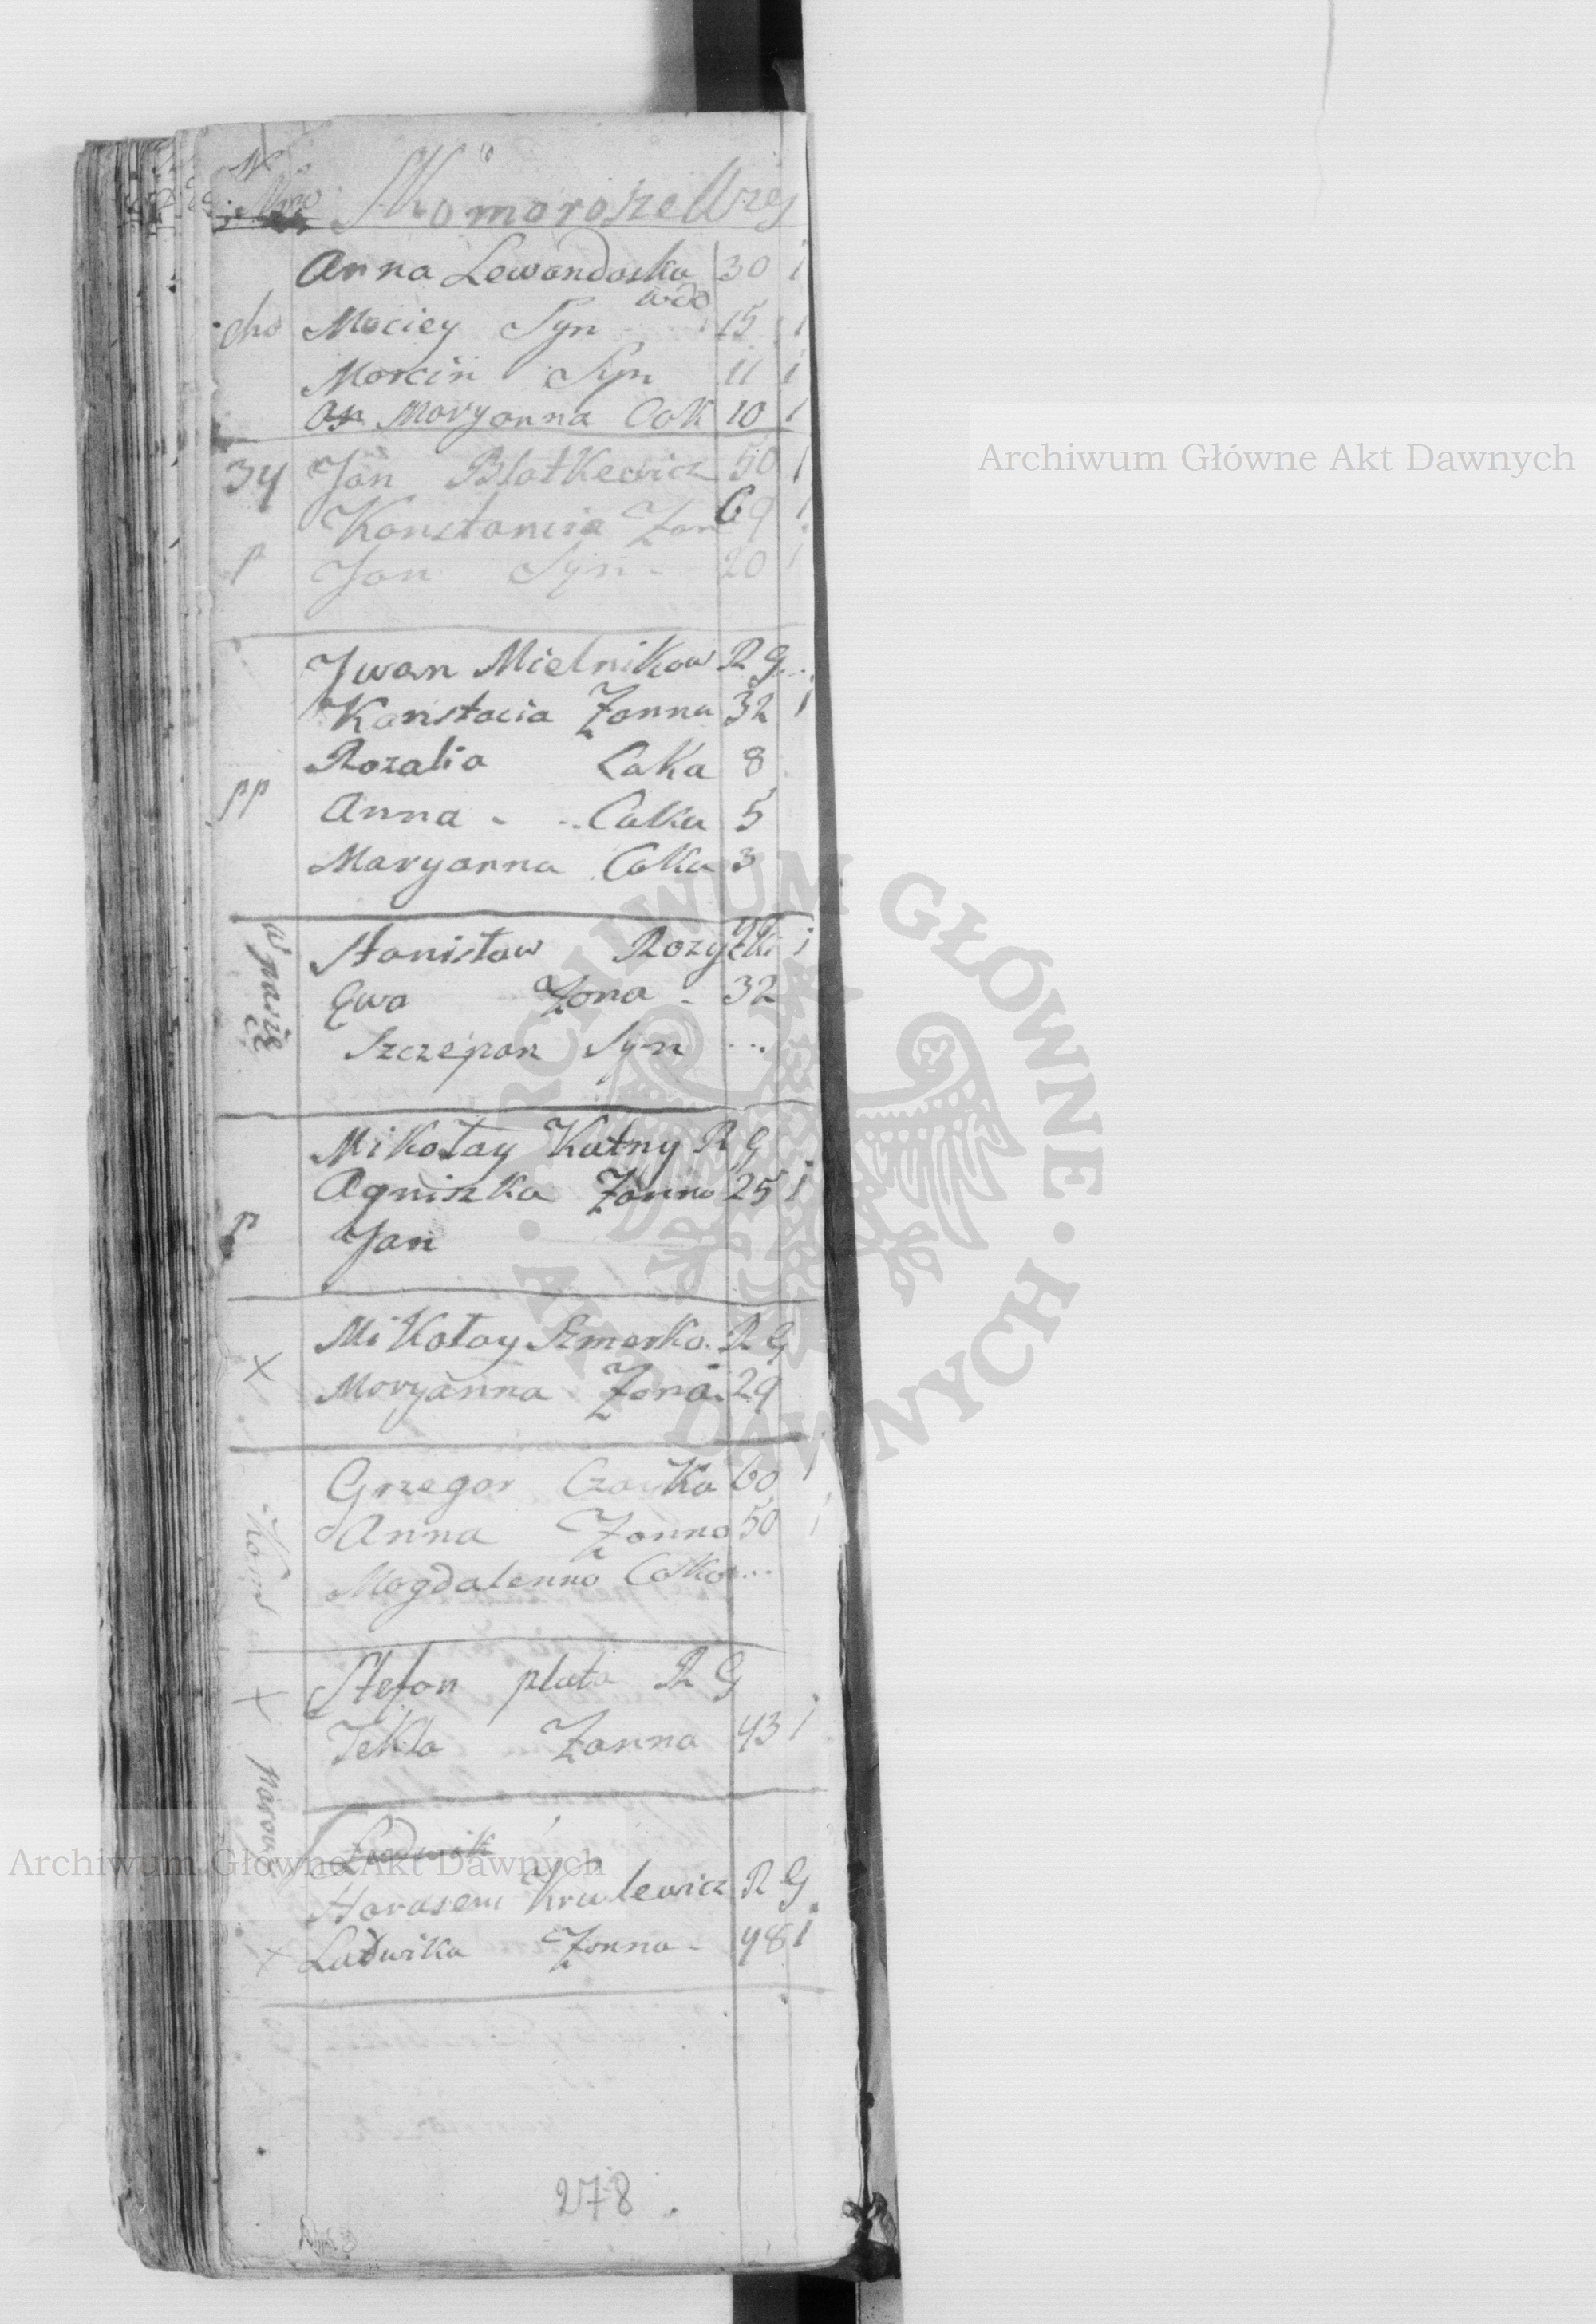 Komoroszellrey
Anna Lewandoska 30 1
wdo
cho Maciey Syn 15 1
Morcin Syn 11 1
Maryanna Cok 10 1
34 Jan Blatkewicz 50 1
Konstancia Zon 69 1
p Jan Syn 20 1
Jwan Mielnikow R G
Konstacia Zonna 32 1
Rozalia Caka 8
pp Anna - - Caka 5
Maryanna Caka 3
Stanisław Rozycki 1
Ewa Zona - 32
Szczepan Syn ...
Mikołay Kutny R G
Agniszka Zonna 25 1
p Jan
Mikołay Szmorko R G
x Moryanna Zona 29
Grzegor 60
Anna Zonna 50 1
Magdalenna Caka ...
x Stefan pluta R G
Tekla Zonna 43 1
Ludwik
Harasem Krulewicz R G
x Ludwika Zonna - 48 1
278
Archiwum Główne Akt Dawnych
Archiwum Główne Akt Dawnych
ARCHIWUM GŁÓWNE · AKT DAWNYCH ·